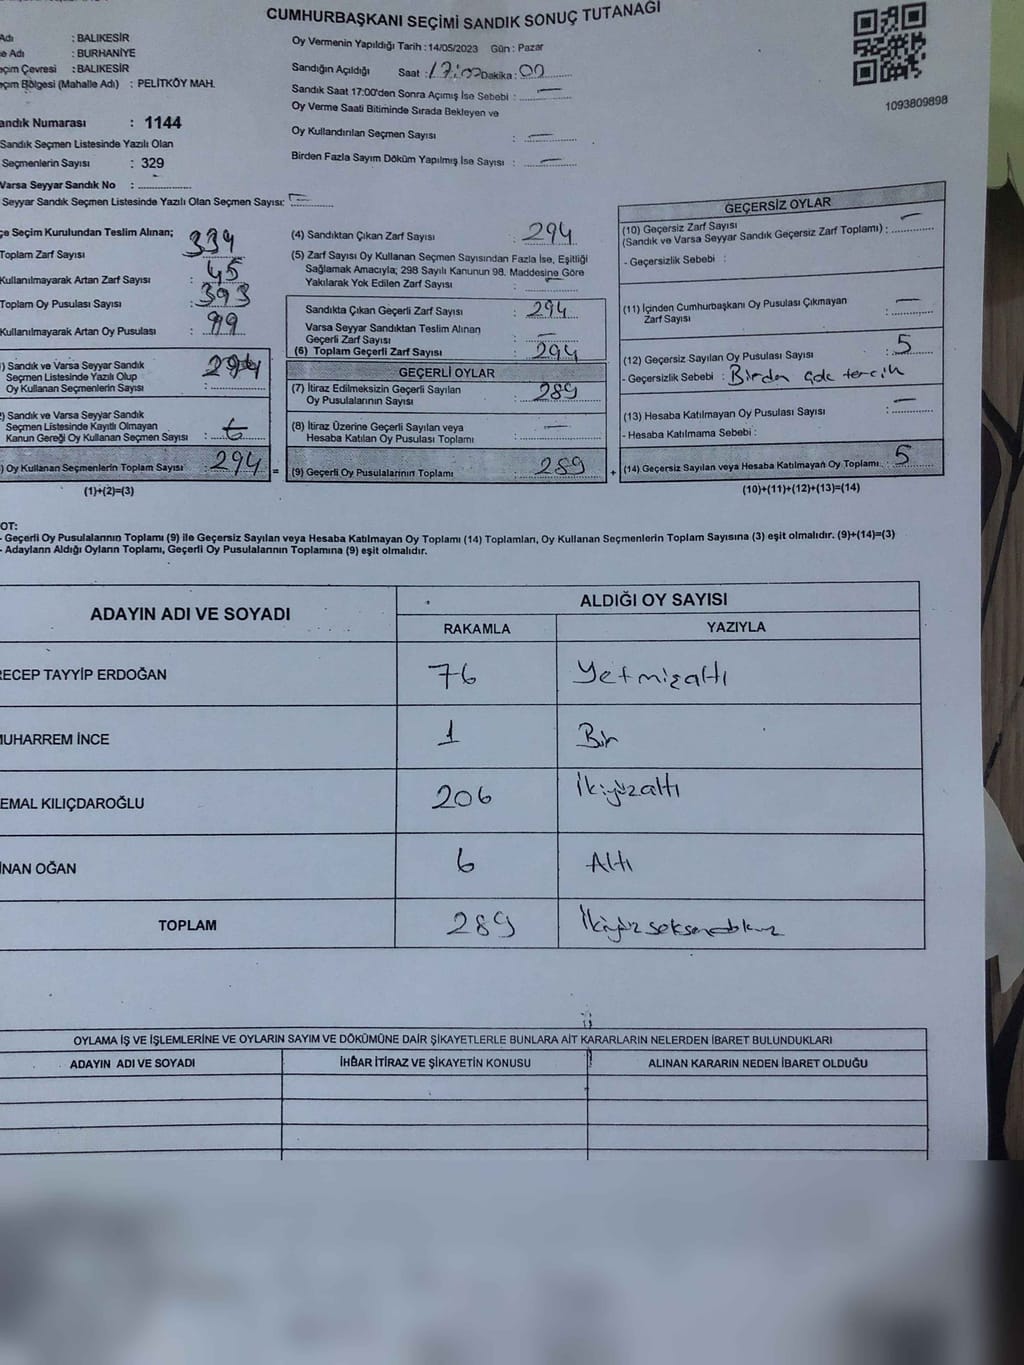 CUMHURBAŞKANI SEÇİMİ SANDIK SONUÇ TUTANAĞI
Adı : BALIKESİR
e Adı : BURHANİYE
eçim Çevresi : BALIKESİR
eçim Bölgesi (Mahalle Adı) : PELİTKÖY MAH.
andık Numarası : 1144
Sandık Seçmen Listesinde Yazılı Olan
Seçmenlerin Sayısı : 329
Varsa Seyyar Sandık No : ..................
Seyyar Sandık Seçmen Listesinde Yazılı Olan Seçmen Sayısı: —
Oy Vermenin Yapıldığı Tarih : 14/05/2023 Gün : Pazar
Sandığın Açıldığı Saat : 17:00 Dakika : 00
Sandık Saat 17:00'den Sonra Açımış İse Sebebi : —
Oy Verme Saati Bitiminde Sırada Bekleyen ve
Oy Kullandırılan Seçmen Sayısı : —
Birden Fazla Sayım Döküm Yapılmış İse Sayısı : —
1093809898
çe Seçim Kurulundan Teslim Alınan;
Toplam Zarf Sayısı 339
Kullanılmayarak Artan Zarf Sayısı : 45
Toplam Oy Pusulası Sayısı : 393
Kullanılmayarak Artan Oy Pusulası : 99
) Sandık ve Varsa Seyyar Sandık
Seçmen Listesinde Yazılı Olup
Oy Kullanan Seçmenlerin Sayısı : 294
) Sandık ve Varsa Seyyar Sandık
Seçmen Listesinde Kayıtlı Olmayan
Kanun Gereği Oy Kullanan Seçmen Sayısı :
) Oy Kullanan Seçmenlerin Toplam Sayısı : 294 =
(1)+(2)=(3)
(4) Sandıktan Çıkan Zarf Sayısı : 294
(5) Zarf Sayısı Oy Kullanan Seçmen Sayısından Fazla İse, Eşitliği
Sağlamak Amacıyla; 298 Sayılı Kanunun 98. Maddesine Göre
Yakılarak Yok Edilen Zarf Sayısı : —
Sandıkta Çıkan Geçerli Zarf Sayısı : 294
Varsa Seyyar Sandıktan Teslim Alınan
Geçerli Zarf Sayısı : —
(6) Toplam Geçerli Zarf Sayısı : 294
GEÇERLİ OYLAR
(7) İtiraz Edilmeksizin Geçerli Sayılan
Oy Pusulalarının Sayısı : 289
(8) İtiraz Üzerine Geçerli Sayılan veya
Hesaba Katılan Oy Pusulası Toplamı : —
(9) Geçerli Oy Pusulalarının Toplamı 289 +
GEÇERSİZ OYLAR
(10) Geçersiz Zarf Sayısı
(Sandık ve Varsa Seyyar Sandık Geçersiz Zarf Toplamı) : —
- Geçersizlik Sebebi :
(11) İçinden Cumhurbaşkanı Oy Pusulası Çıkmayan
Zarf Sayısı : —
(12) Geçersiz Sayılan Oy Pusulası Sayısı : 5
- Geçersizlik Sebebi : Birden çok tercih
(13) Hesaba Katılmayan Oy Pusulası Sayısı : —
- Hesaba Katılmama Sebebi :
(14) Geçersiz Sayılan veya Hesaba Katılmayan Oy Toplamı : 5
(10)+(11)+(12)+(13)=(14)
OT:
- Geçerli Oy Pusulalarının Toplamı (9) ile Geçersiz Sayılan veya Hesaba Katılmayan Oy Toplamı (14) Toplamları, Oy Kullanan Seçmenlerin Toplam Sayısına (3) eşit olmalıdır. (9)+(14)=(3)
- Adayların Aldığı Oyların Toplamı, Geçerli Oy Pusulalarının Toplamına (9) eşit olmalıdır.
ADAYIN ADI VE SOYADI ALDIĞI OY SAYISI
RAKAMLA YAZIYLA
RECEP TAYYİP ERDOĞAN 76 Yetmişaltı
MUHARREM İNCE 1 Bir
EMAL KILIÇDAROĞLU 206 İkiyüzaltı
İNAN OĞAN 6 Altı
TOPLAM 289 İkiyüzseksendokuz
OYLAMA İŞ VE İŞLEMLERİNE VE OYLARIN SAYIM VE DÖKÜMÜNE DAİR ŞİKAYETLERLE BUNLARA AİT KARARLARIN NELERDEN İBARET BULUNDUKLARI
ADAYIN ADI VE SOYADI İHBAR İTİRAZ VE ŞİKAYETİN KONUSU ALINAN KARARIN NEDEN İBARET OLDUĞU